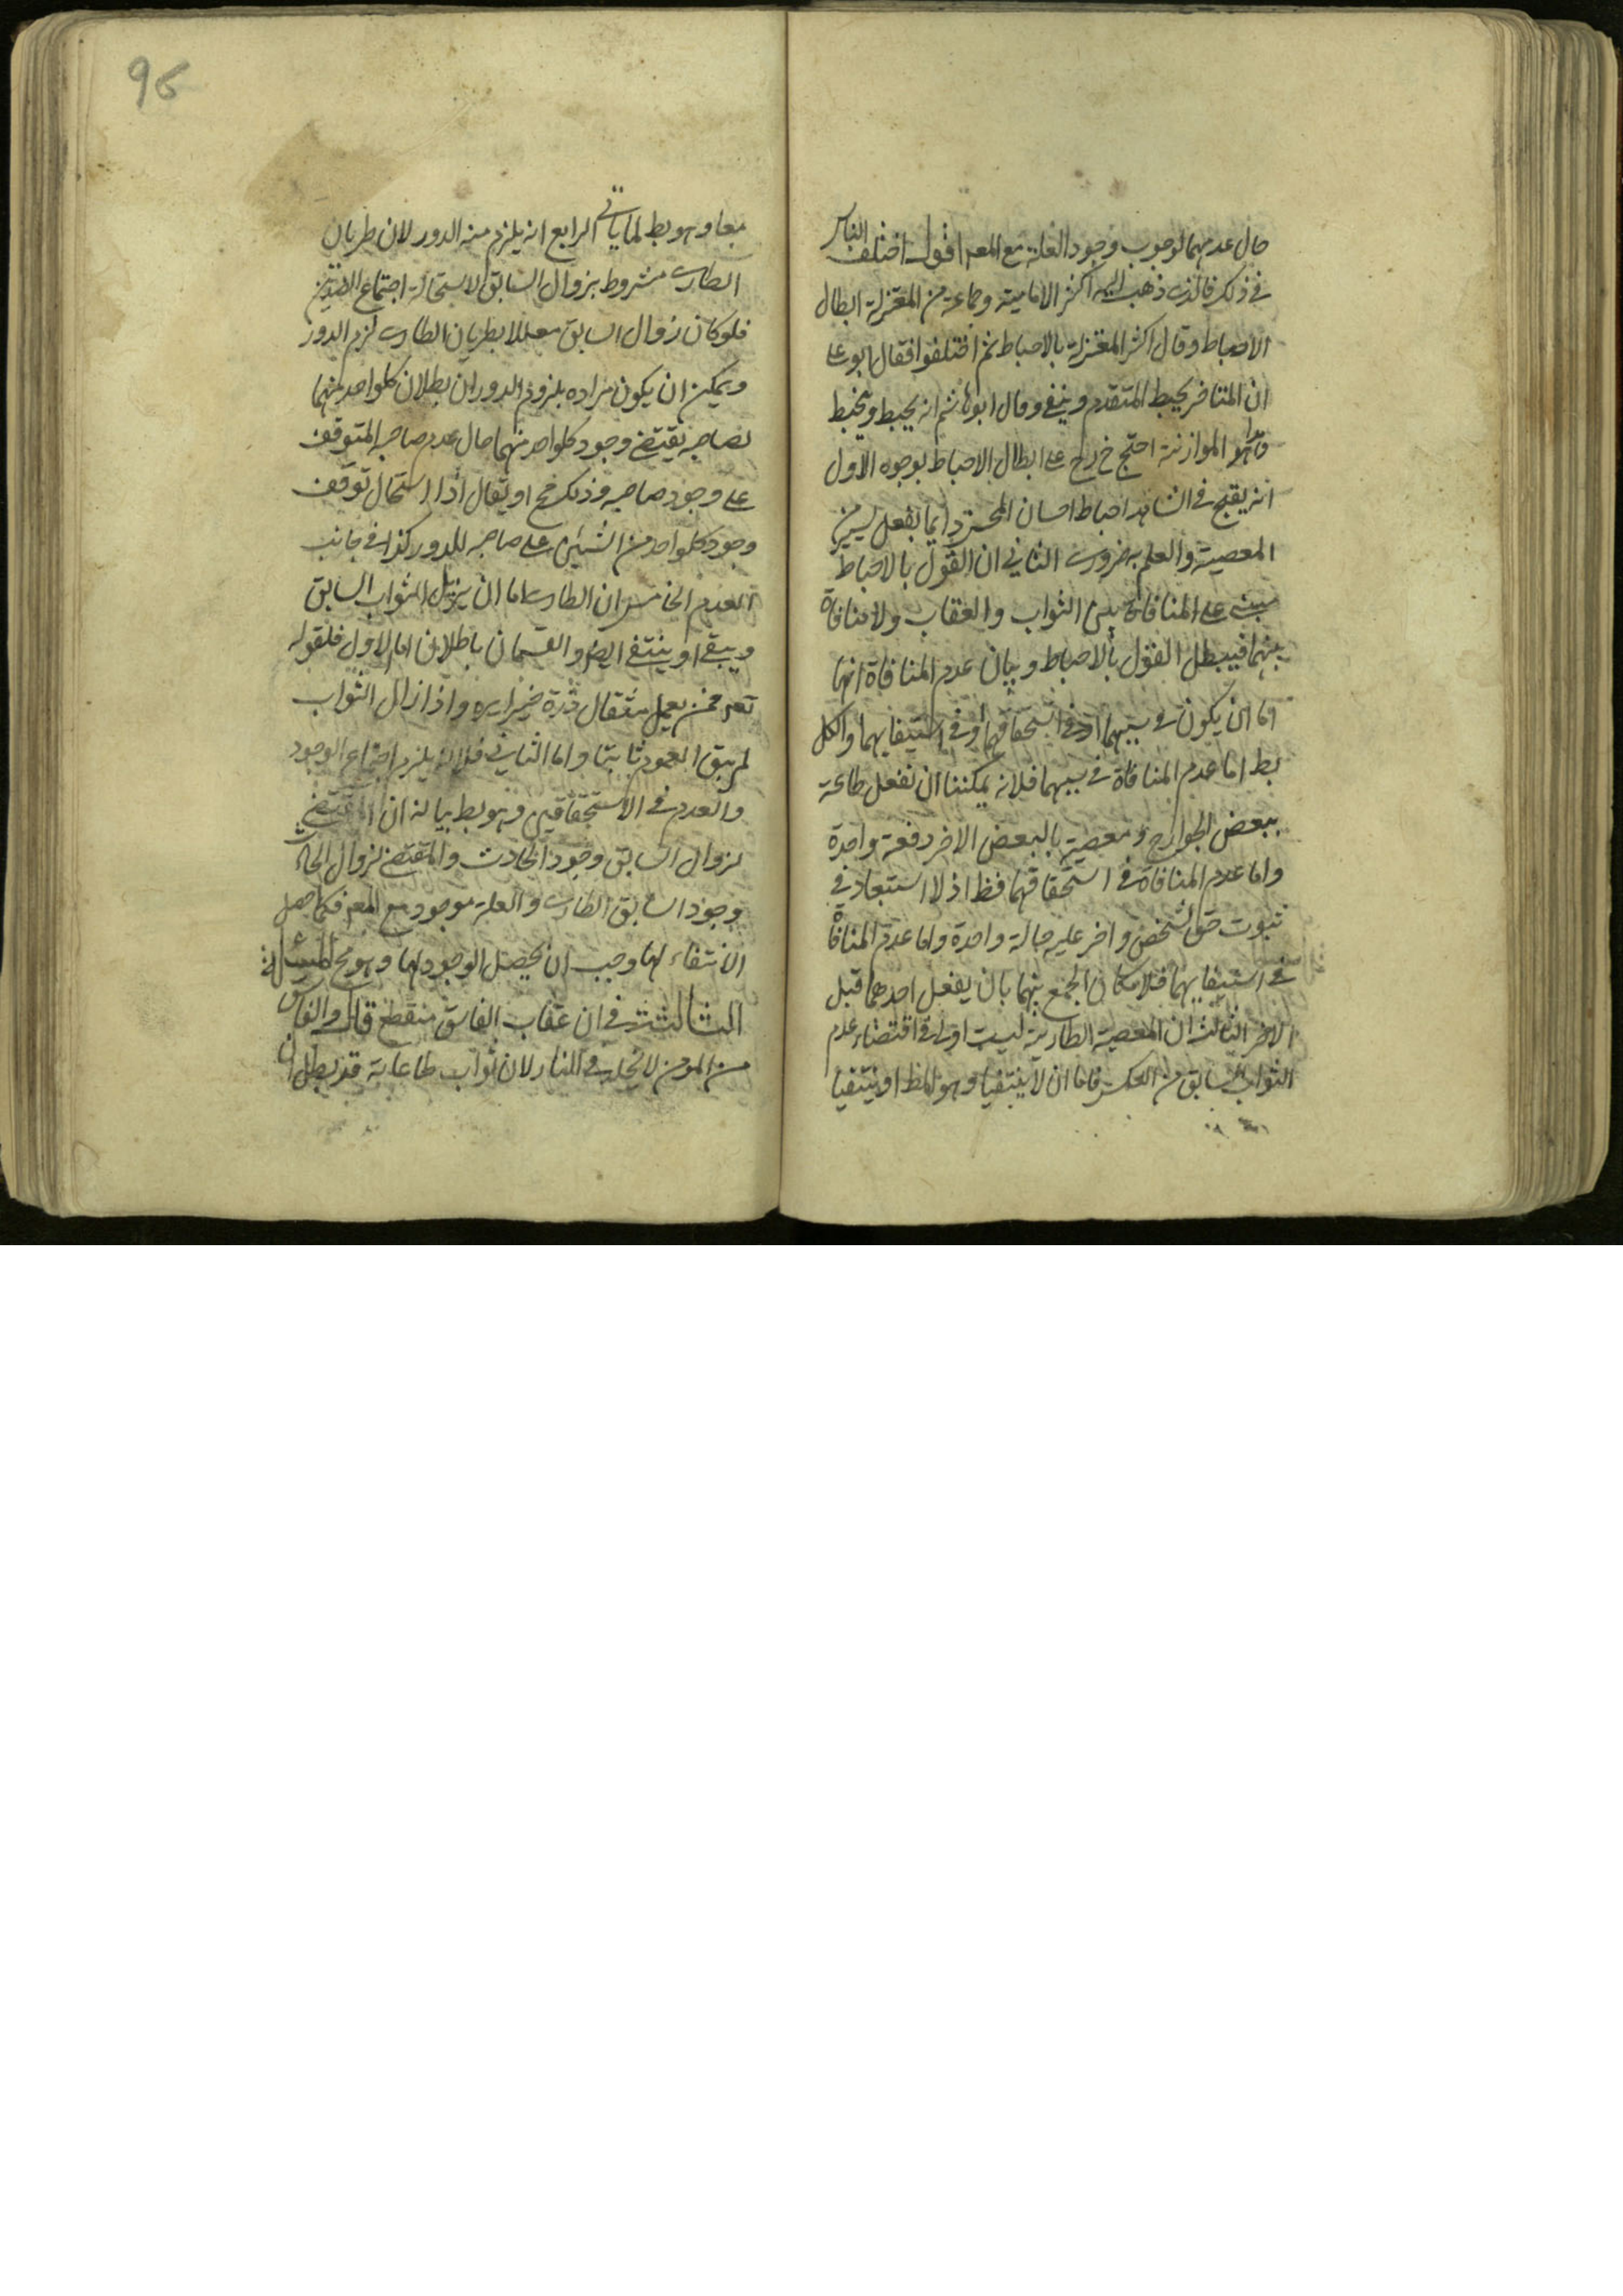 حال عدمهما لوجوب وجود العلة مع المعه اقول اختلف الناس
في ذلك فالذي ذهب اليه اكثر الامامية وجماعة من المعتزلة ابطال
الاحباط وقال اكثر المعتزلة بالاحباط ثم اختلفوا فقال ابو علي
ان المتاخر يحبط المتقدم ويبقى وقال ابو هاشم انه يحبط وينحبط
الموازنة احتج على ابطال الاحباط بوجوه الاول
انه يقبح في الشاهد احباط احسان المحسن دايما بفعل يسير من
المعصية والعلم به ضروري الثاني ان القول بالاحباط
مبني على المنافاة بين الثواب والعقاب ولا منافاة
بينهما فيبطل القول بالاحباط وبيان عدم المنافاة انها
اما ان يكون في سببهما او في استحقاقهما او في استيفايهما والكل
بط اما عدم المنافاة في سببهما فلانه يمكننا ان نفعل طاعة
ببعض الجوارح ومعصية بالبعض الاخر دفعة واحدة
واما عدم المنافاة في استحقاقهما فظ اذ لا استبعاد في
ثبوت حق لشخص واخر عليه حالة واحدة واما عدم المنافاة
في استيفايهما فلامكان الجمع بينهما بان يفعل احدهما قبل
الاخر الثالث ان المعصية الطارية ليست اولى في اقتضاء عدم
الثواب السابق من العكس فاما ان لا ينتفيا وهو المط او ينتفيا
96
معا وهو بط لما ياتي الرابع انه يلزم منه الدور لان طريان
الطاري مشروط بزوال السابق لاستحالة اجتماع الضدين
فلو كان زوال السابق معللا بطريان الطاري لزم الدور
ويمكن ان يكون مراده بلزوم الدور ان بطلان كلواحد منهما
لصاحبه يقتضي وجود كلواحد منهما حال عدم صاحبه المتوقف
على وجود صاحبه وذلك مح او يقال اذا استحال توقف
وجود كلواحد من الشيئين على صاحبه للدور كذا في جانب
العدم الخامس ان الطاري اما ان يزيل الثواب السابق
ويبقى او ينتفي ايضا والقسمان باطلان اما الاول فلقوله
تعه فمن يعمل مثقال ذرة خيرا يره واذا زال الثواب
لم يبق العموم ثابتا واما الثاني فلانه يلزم اجتماع الوجود
والعدم في الاستحقاقين وهو بط بيانه ان المقتضي
لزوال السابق وجود الحادث والمقتضي لزوال الحادث
وجود السابق الطاري والعلة موجود مع المعه فكما حصل
الانتفاء لهما وجب ان يحصل الوجود لهما وهو مح المسئلة
الثالثة في ان عقاب الفاسق منقطع قال والفاسق
من المومن لا يخلد في النار لان ثواب طاعاته قد بطل ان